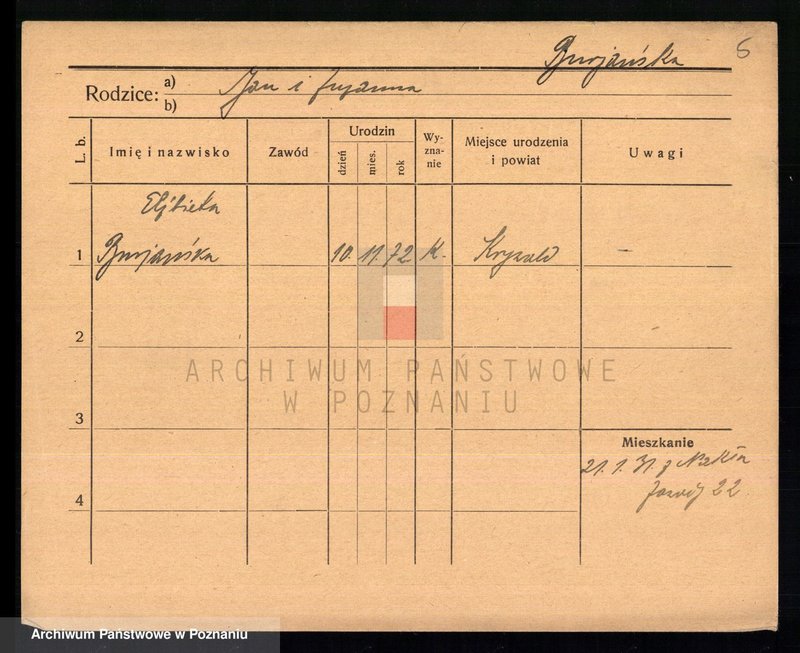 Burjańska 6
Rodzice: a) Jan i Zuzanna
b)
L. b. Imię i nazwisko Zawód Urodzin dzień mies. rok Wy-zna-nie Miejsce urodzenia i powiat Uwagi
Elżbieta
1 Burjańska 10. 11. 72 K.
2
ARCHIWUM PAŃSTWOWE
W POZNANIU
3
Mieszkanie
21. 1. 31. z Nakła
4 22
Archiwum Państwowe w Poznaniu